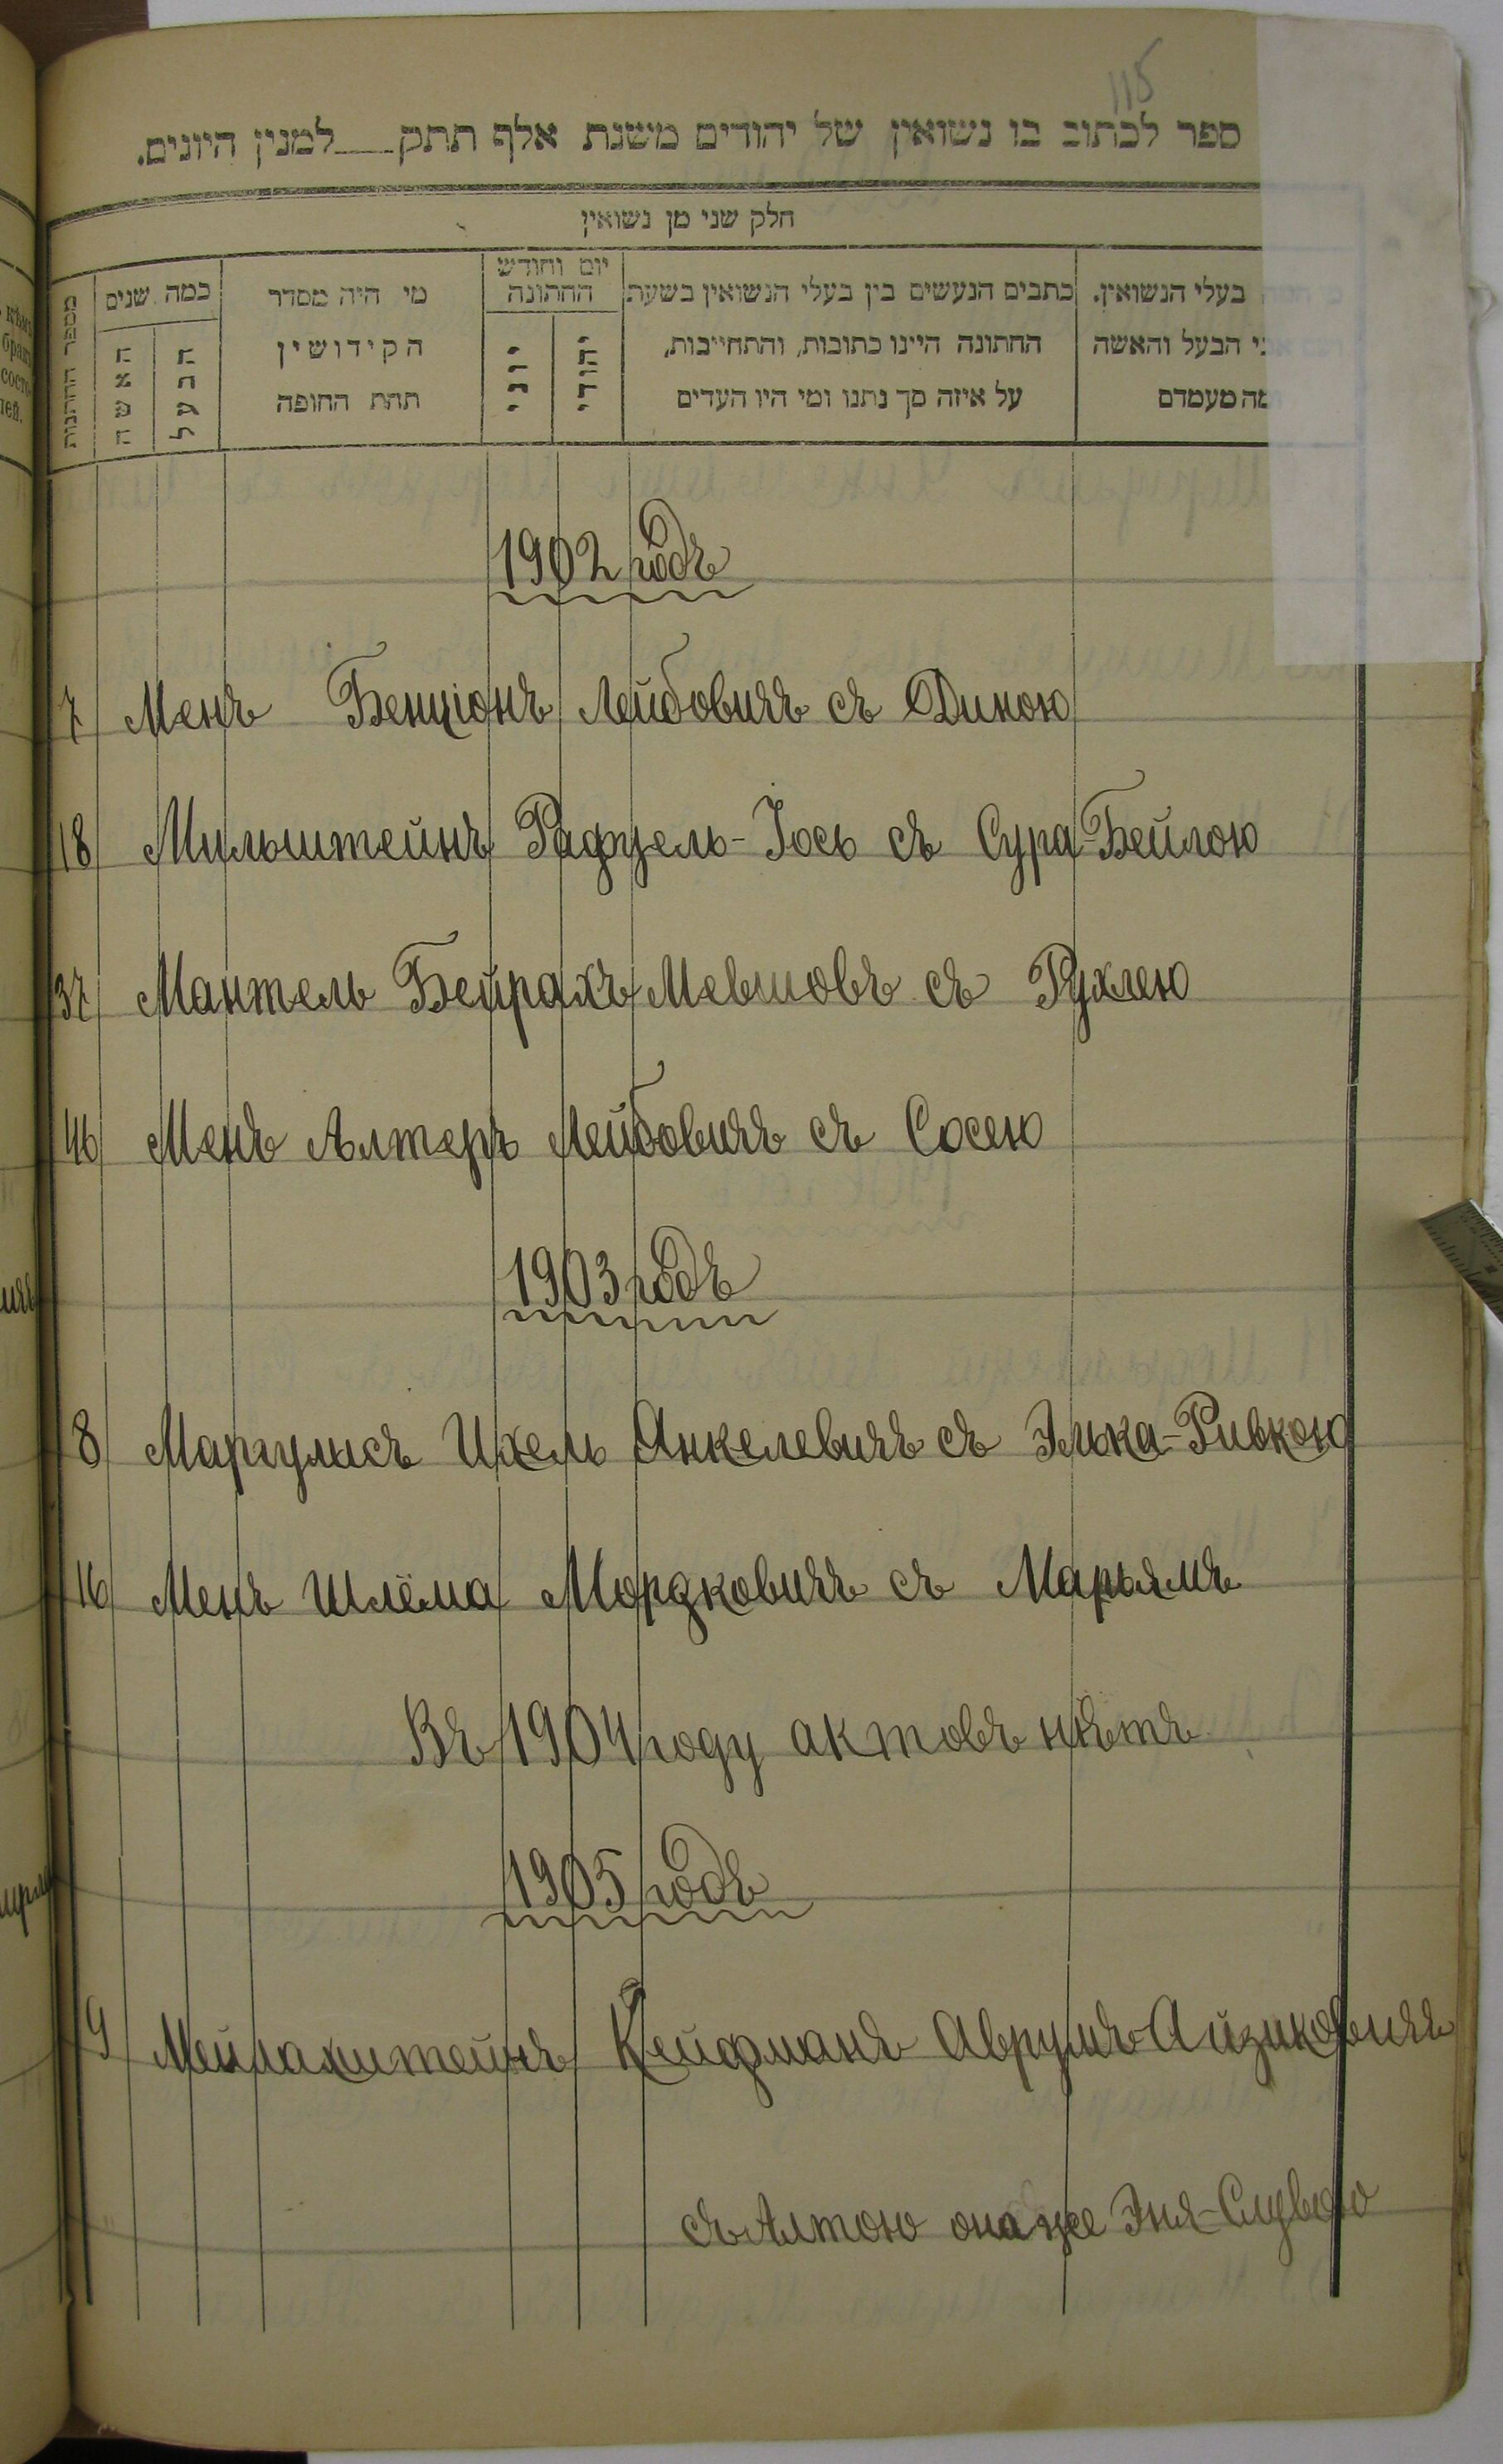 115
ספר לכתוב בו נשואין של יהודים משנת אלף תתק למנין היונים.
חלק שני מן נשואין
בעלי הנשואין.
הבעל והאשה
מעמדם
כתבים הנעשים בין בעלי הנשואין בשעת
החתונה היינו כתובות, והתחייבות,
על איזה סך נתנו ומי היו העדים
יום וחודש
החתונה
יהודי
יוני
מי היה מסדר
הקידושין
תחת החופה
כמה שנים
הבעל
האשה
מספר החתונות
1902 годъ
7 Менъ Бенціонъ Лейбовичъ съ Диною
18 Мильштейнъ Рафуель-Іось съ Сура-Бейлою
37 Мантель Бейрахъ Мевшовъ съ Рухлею
46 Менъ Алтеръ Лейбовичъ съ Сосею
1903 годъ
8 Маргулисъ Ихель Янкелевичъ съ Элька-Ривкою
16 Менъ Шлёма Мордковичъ съ Марьямъ
Въ 1904 году актовъ нѣтъ
1905 годъ
9 Мейлахштейнъ Кейфманъ Аврумъ-Айзиковичъ
съ Алтою она же Эня-Слувою